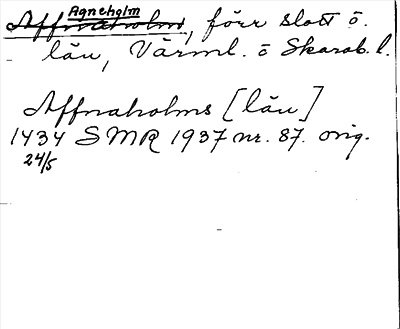 Agneholm
Affnaholms, förr slott o.
län, Värml. o Skarab. l.
Affnaholms [län]
1434 SMR 1937 nr. 87. orig.
24/5